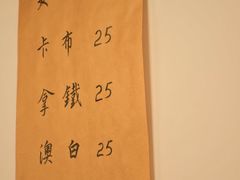 卡布 25
拿鐵 25
澳白 25